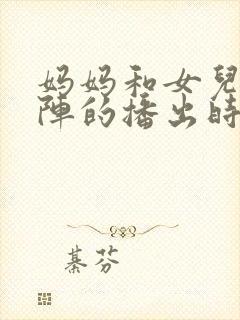 妈妈和女兒
陣的播出時
綦芬